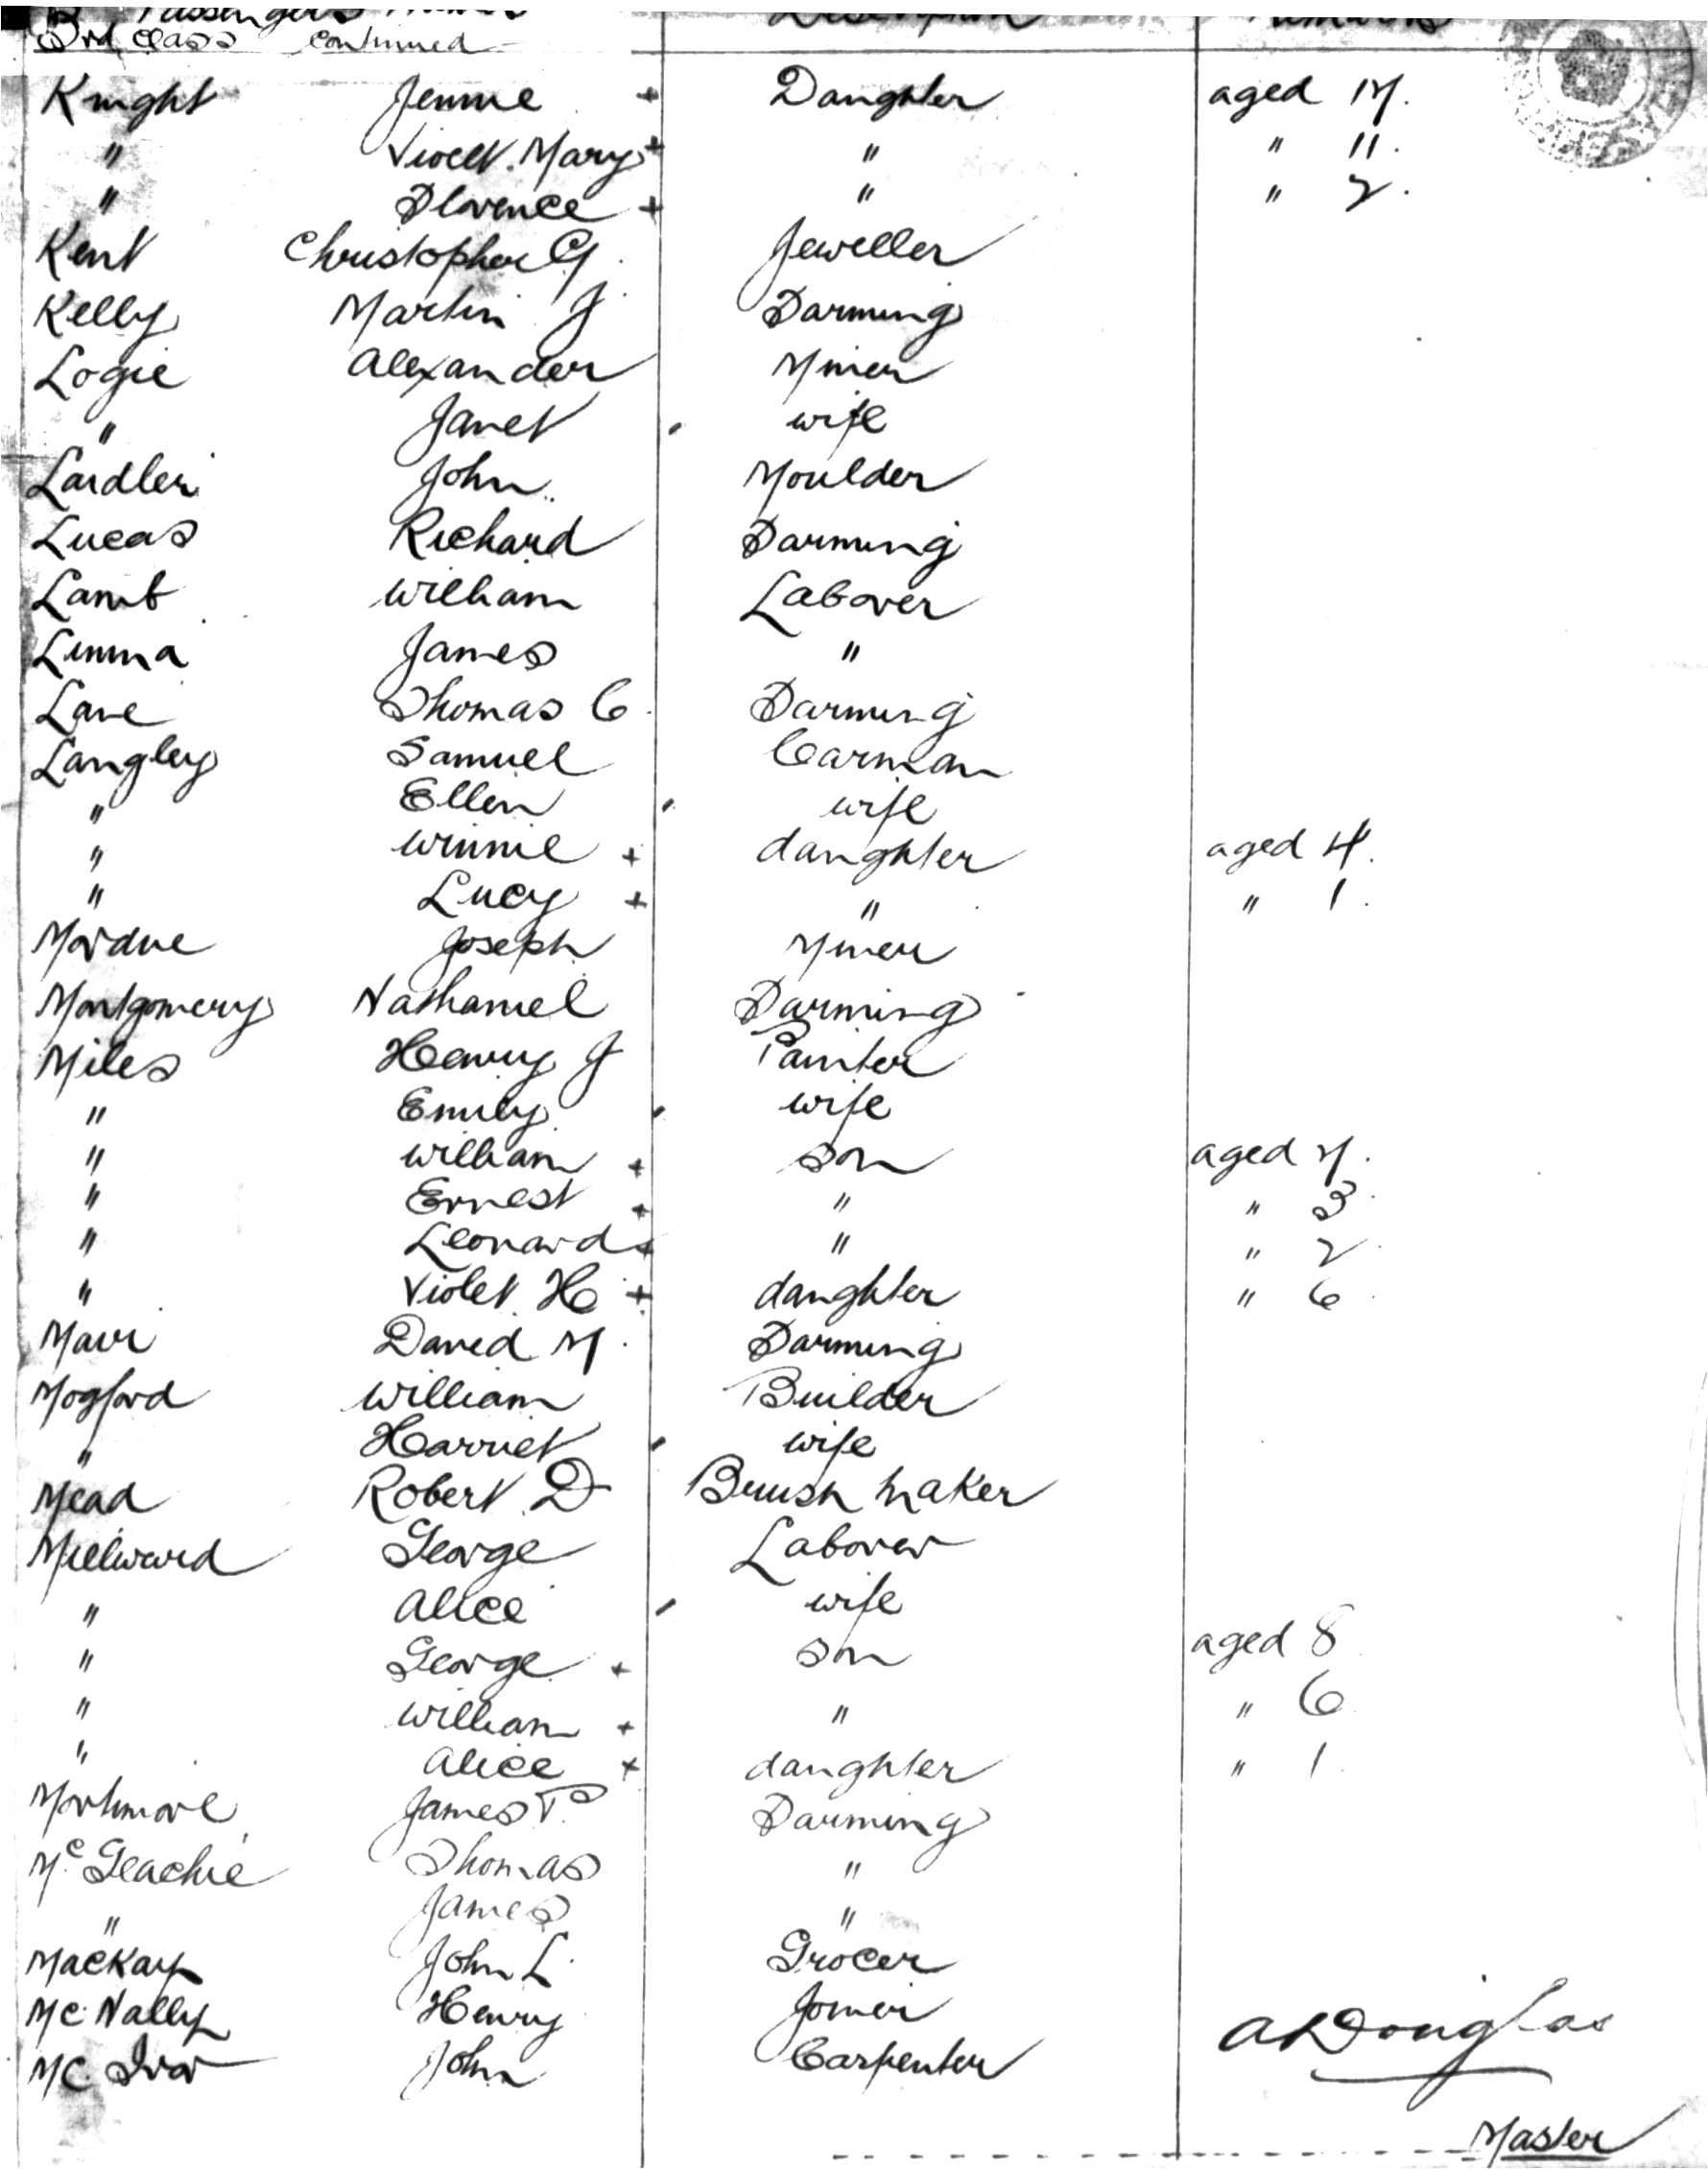 Passengers Names Description Remarks
3rd class continued
Knight Jennie + Daughter aged 17.
" Violet Mary + " " 11.
" Florence + " " 2.
Kent Christopher G. Jeweller
Kelly Martin J. Farming
Logie Alexander Miner
" Janet wife
Laidler John Moulder
Lucas Richard Farming
Lamb William Laborer
James "
Lane Thomas C. Farming
Langley Samuel Carman
" Ellen wife
" Winnie + daughter aged 4.
" Lucy + " " 1.
Mordue Joseph Miner
Montgomery Nathaniel Farming
Miles Henry J Painter
" Emily wife
" William + son aged 7.
" Ernest + " " 3.
" Leonard + " " 2
" Violet H + daughter " 6.
Mair David M. Farming
Mogford William Builder
" Harriet wife
Mead Robert D Brush maker
Millward George Laborer
" Alice wife
" George + son aged 8
" William + " " 6
" Alice + daughter " 1.
Mortimore James T. Farming
Mc Geachie Thomas "
" James "
Mackay John L. Grocer
Mc Nally Henry Joiner
Mc Ivor John Carpenter
A R Douglas
Master